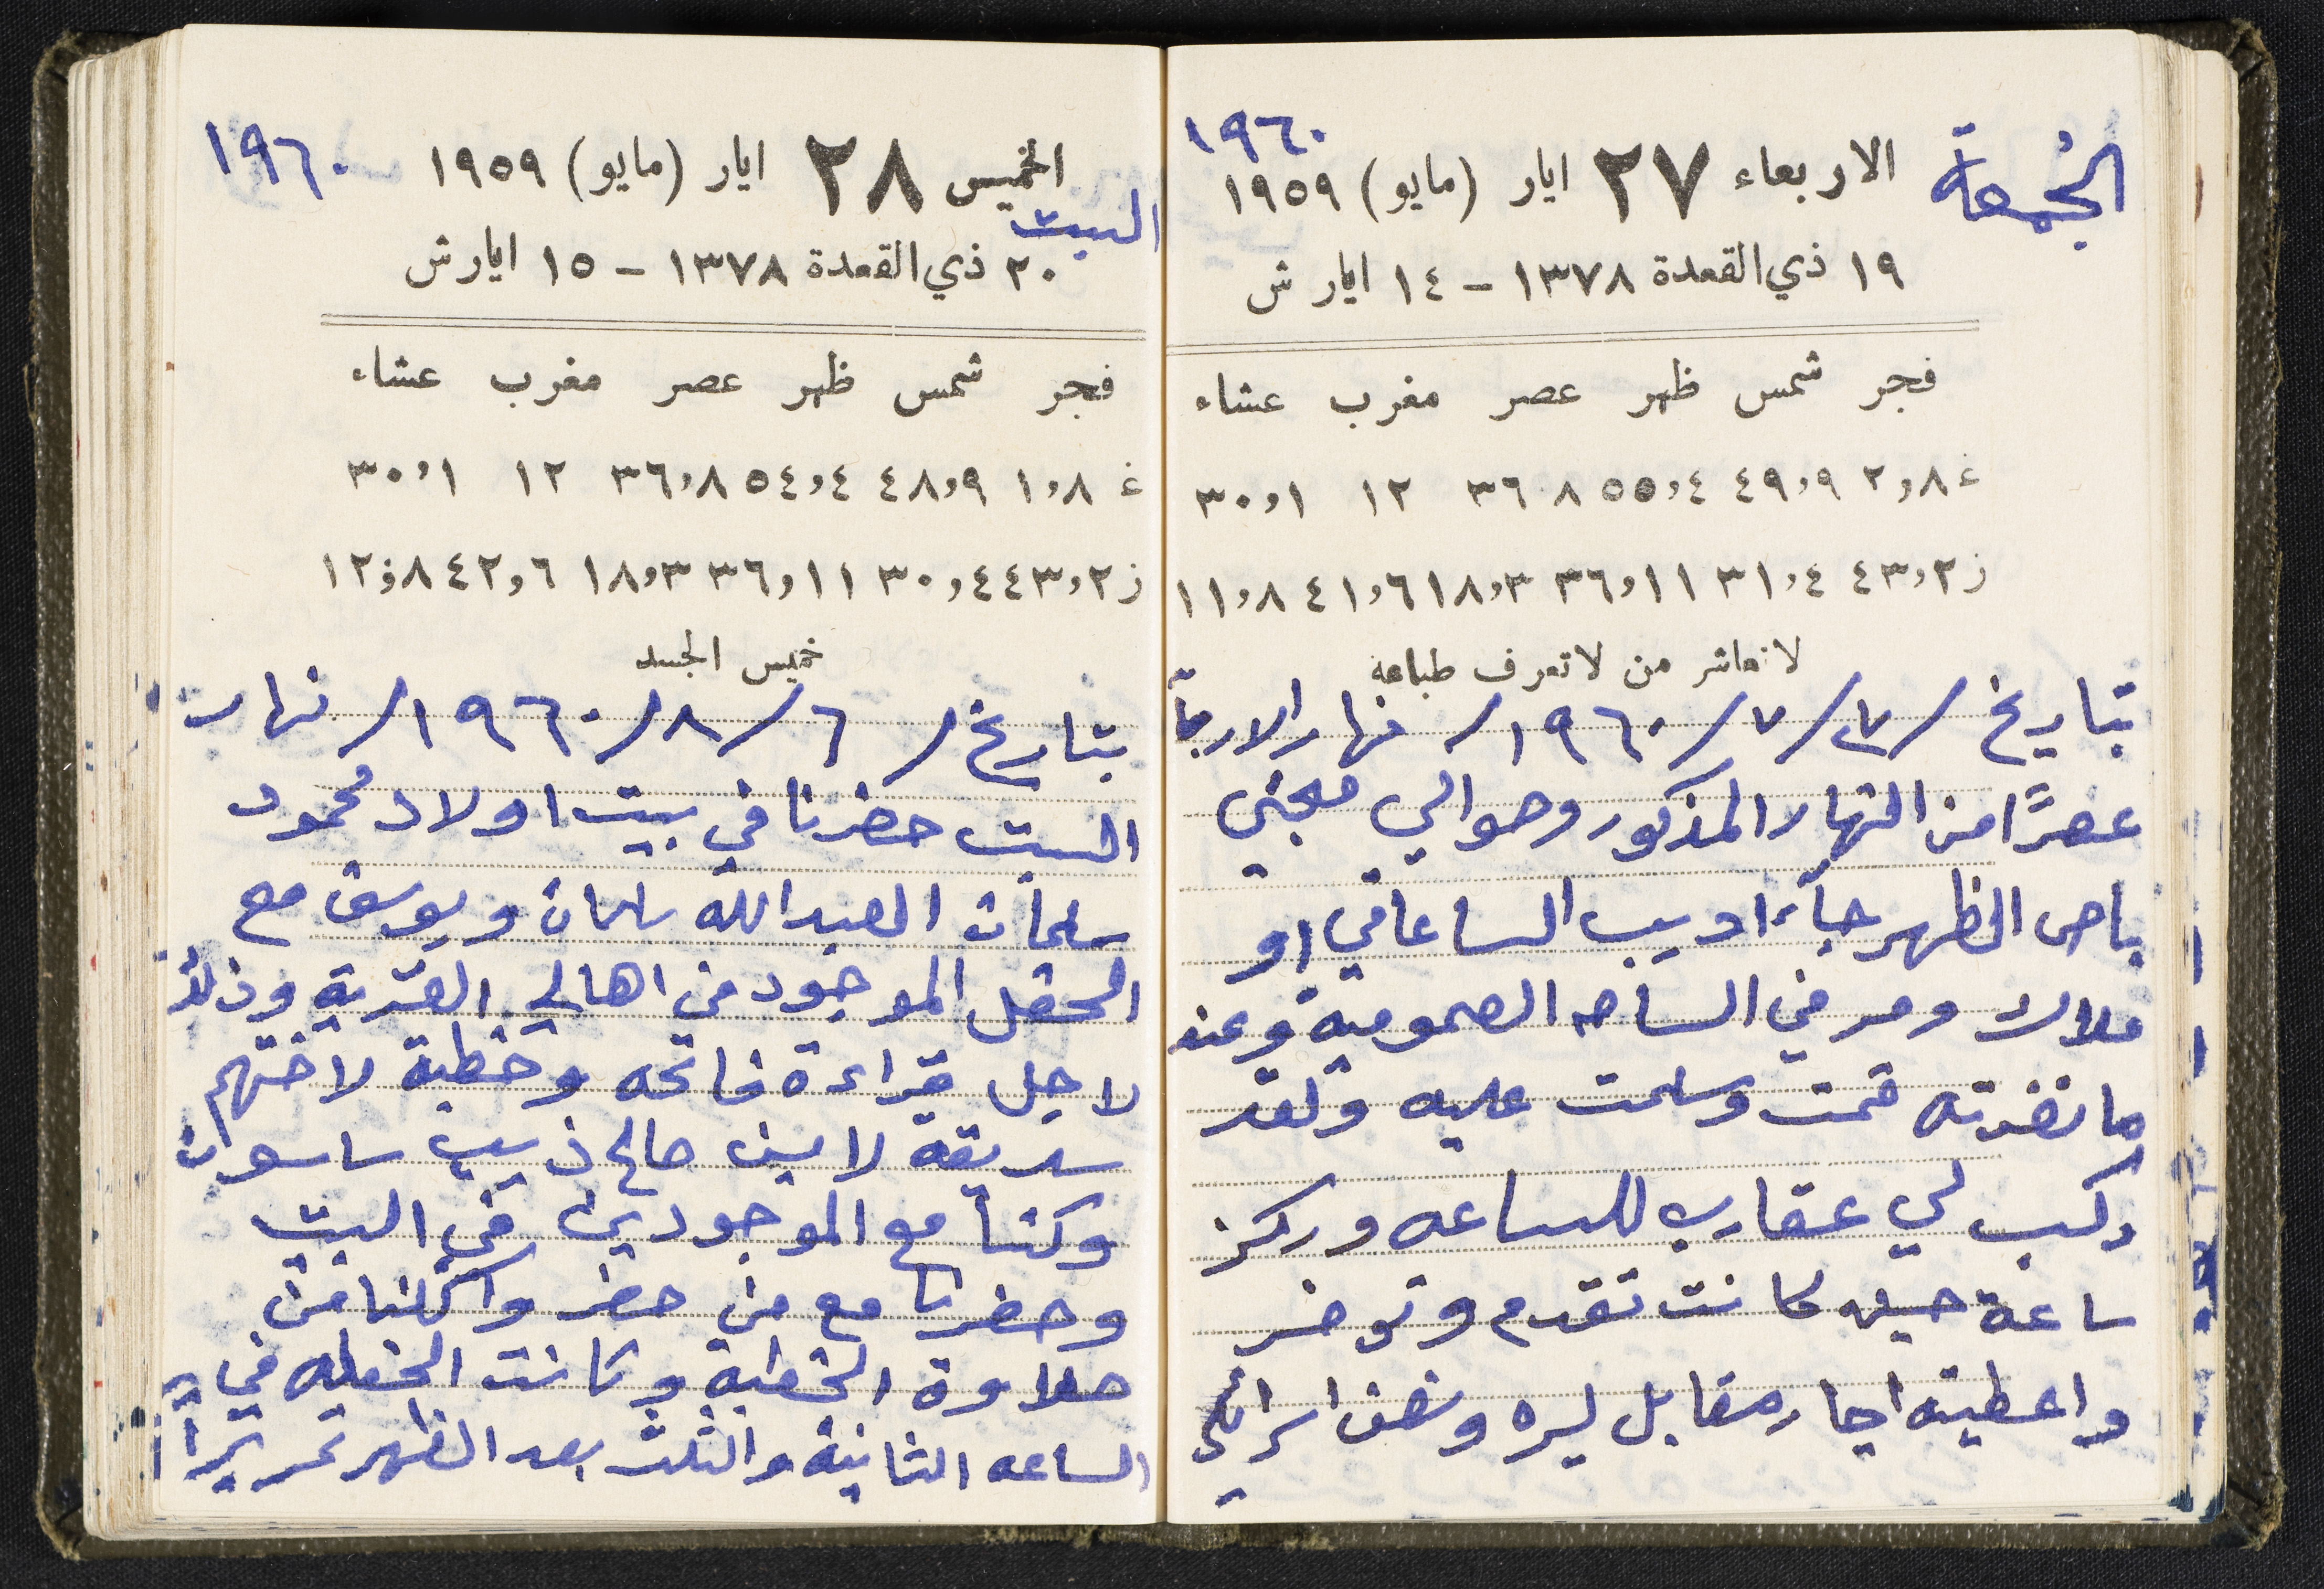 الجُمعة
١٩٦٠
الاربعاء ٢٧ ايار (مايو) ١٩٥٩
١٩ ذي القعدة ١٣٧٨ – ١٤ ايار ش
فجر شمس ظهر عصر مغرب عشاء
غ ٢٫٨ ٤٩٫٩ ٥٥٫٤ ٣٦٠٨ ١٢ ٣٠٫١
ز ٤٣٫٢ ٣١٫٤ ٣٦٫١١ ١٨٫٣ ٤١٫٦ ١١٫٨
لا تعاشر من لا تعرف طباعه
بتاريخ /٢٧/٧/١٩٦٠/ نهار الاربعآ
عصرًا من النهار المذكور وحوالي مجئي
باص الظهر جآء اديب الساعاتي ابو
ملاك ومر في الساحه العموميه وعند
ما نضرته قمت وسلمت عليه ولقد
ركب لي عقارب للساعه وركز
ساعة حيطه كانت تقدم وتوخر
واعطيته اجار مقابل ليره ونصف اسرائلي
١٩٦٠
الخميس ٢٨ ايار (مايو) ١٩٥٩
السبت
٢٠ ذي القعدة ١٣٧٨ – ١٥ ايار ش
فجر شمس ظهر عصر مغرب عشاء
غ ١٫٨ ٤٨٫٩ ٥٤٫٤ ٣٦٫٨ ١٢ ٣٠٫١
ز ٤٣٫٢ ٣٠٫٤ ٣٦٫١١ ١٨٫٣ ٤٢٫٦ ١٢٫٨
خميس الجسد
بتاريخ /٦/٨/١٩٦٠/ نهار
السبت حضرنا في بيت اولاد محمود
سلمان العبدالله سلمان ويوسف مع
المحفل الموجود من اهالي القرية وذلك
لاجل قراءة فاتحه وخطبة لاختهم
سديقة لامين صالح ذيب
وكنا مع الموجودين في البيت
وحضرنا مع من حضر واكلنا من
حلاوة الخطبة وكانت الحفله في
الساعه الثانية والثلث بعد الظهر تحريرًا